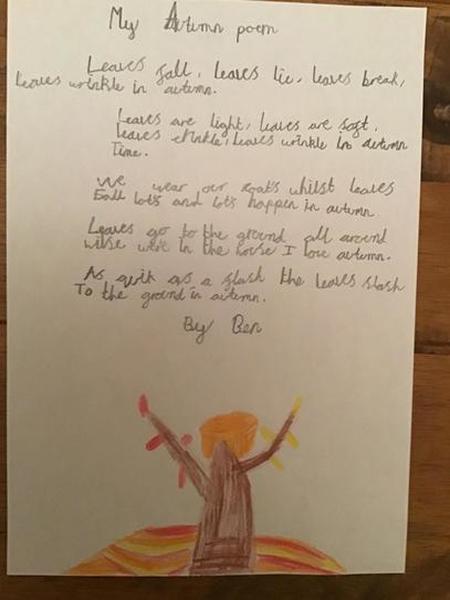 My Autumn poem
Leaves fall, leaves lie, leaves break,
leaves wrinkle in autumn.
Leaves are light, leaves are soft,
leaves crinkle, leaves wrinkle in autumn
Time.
We wear our coats whilst leaves
fall lots and lots happen in autumn.
Leaves go to the ground all around
wilse we're in the house I love autumn.
As quik as a slash the leaves slash
To the ground in autumn.
By Ben